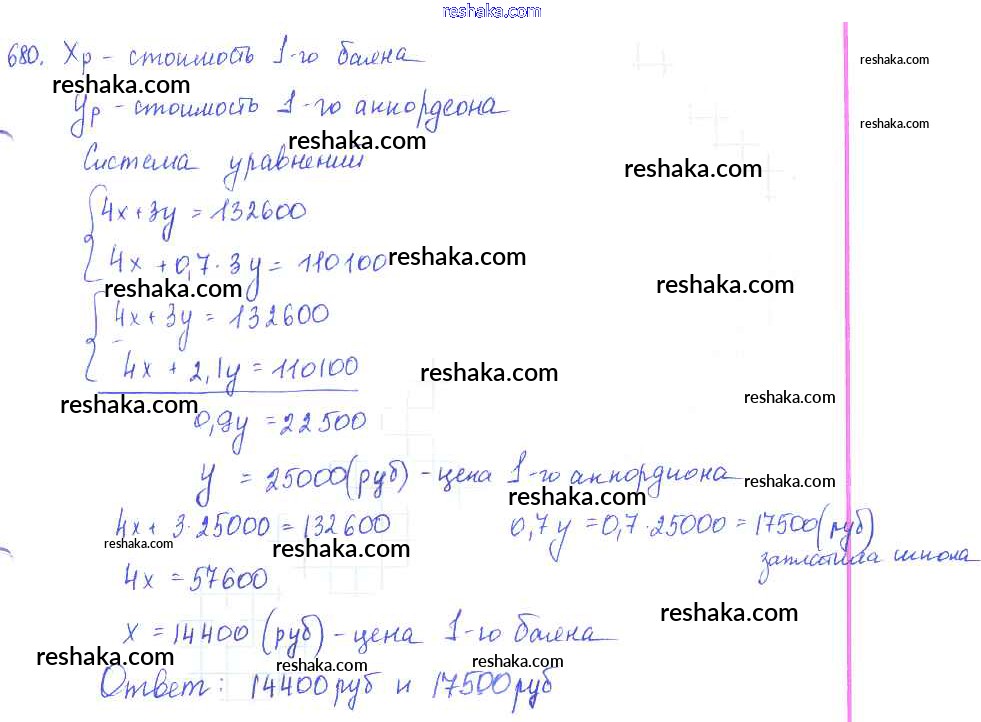 reshaka.com
680. Xр - стоимость 1-го баяна
reshaka.com
reshaka.com
Yр - стоимость 1-го аккордеона
reshaka.com
reshaka.com
Система уравнений
reshaka.com
4x + 3y = 132600
4x + 0,7 · 3y = 110100
reshaka.com
reshaka.com
reshaka.com
4x + 3y = 132600
4x + 2,1y = 110100
reshaka.com
reshaka.com
reshaka.com
0,9y = 22500
y = 25000 (руб) - цена 1-го аккордиона
reshaka.com
reshaka.com
4x + 3·25000 = 132600 0,7y = 0,7·25000 = 17500 (руб)
reshaka.com
reshaka.com
заплатила школа
4x = 57600
reshaka.com
x = 14400 (руб) - цена 1-го баяна
reshaka.com
reshaka.com
reshaka.com
Ответ: 14400 руб и 17500 руб